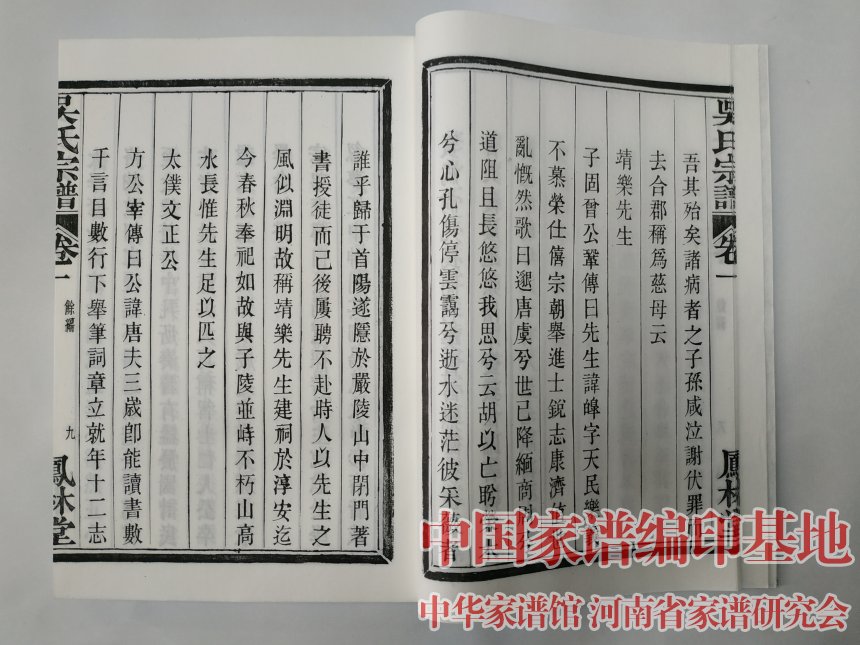 吳氏宗譜
卷一
鳳林堂
吾其殆矣諸病者之子孫咸泣謝伏罪
去合郡稱為慈母云
靖樂先生
子固曾公鞏傳曰先生諱皥字天民樂
不慕榮仕僖宗朝舉進士銳志康濟
亂慨然歌曰邈唐虞兮世已降緬商周
道阻且長悠悠我思兮云胡以亡盻
兮心孔傷停雲靄兮逝水迷茫彼采
誰乎歸于首陽遂隱於嚴陵山中閉門著
書授徒而己後屢聘不赴時人以先生之
風似淵明故稱靖樂先生建祠於淳安迄
今春秋奉祀如故與子陵並峙不朽山高
水長惟先生足以匹之
太僕文正公
方公宰傳曰公諱唐夫三歲卽能讀書數
千言目數行下舉筆詞章立就年十二志
吳氏宗譜
卷一
餘編
九
鳳林堂
中国家谱编印基地
中华家谱馆 河南省家谱研究会